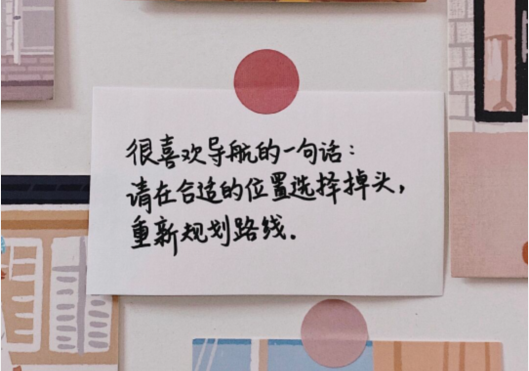 很喜欢导航的一句话：
请在合适的位置选择掉头，
重新规划路线.